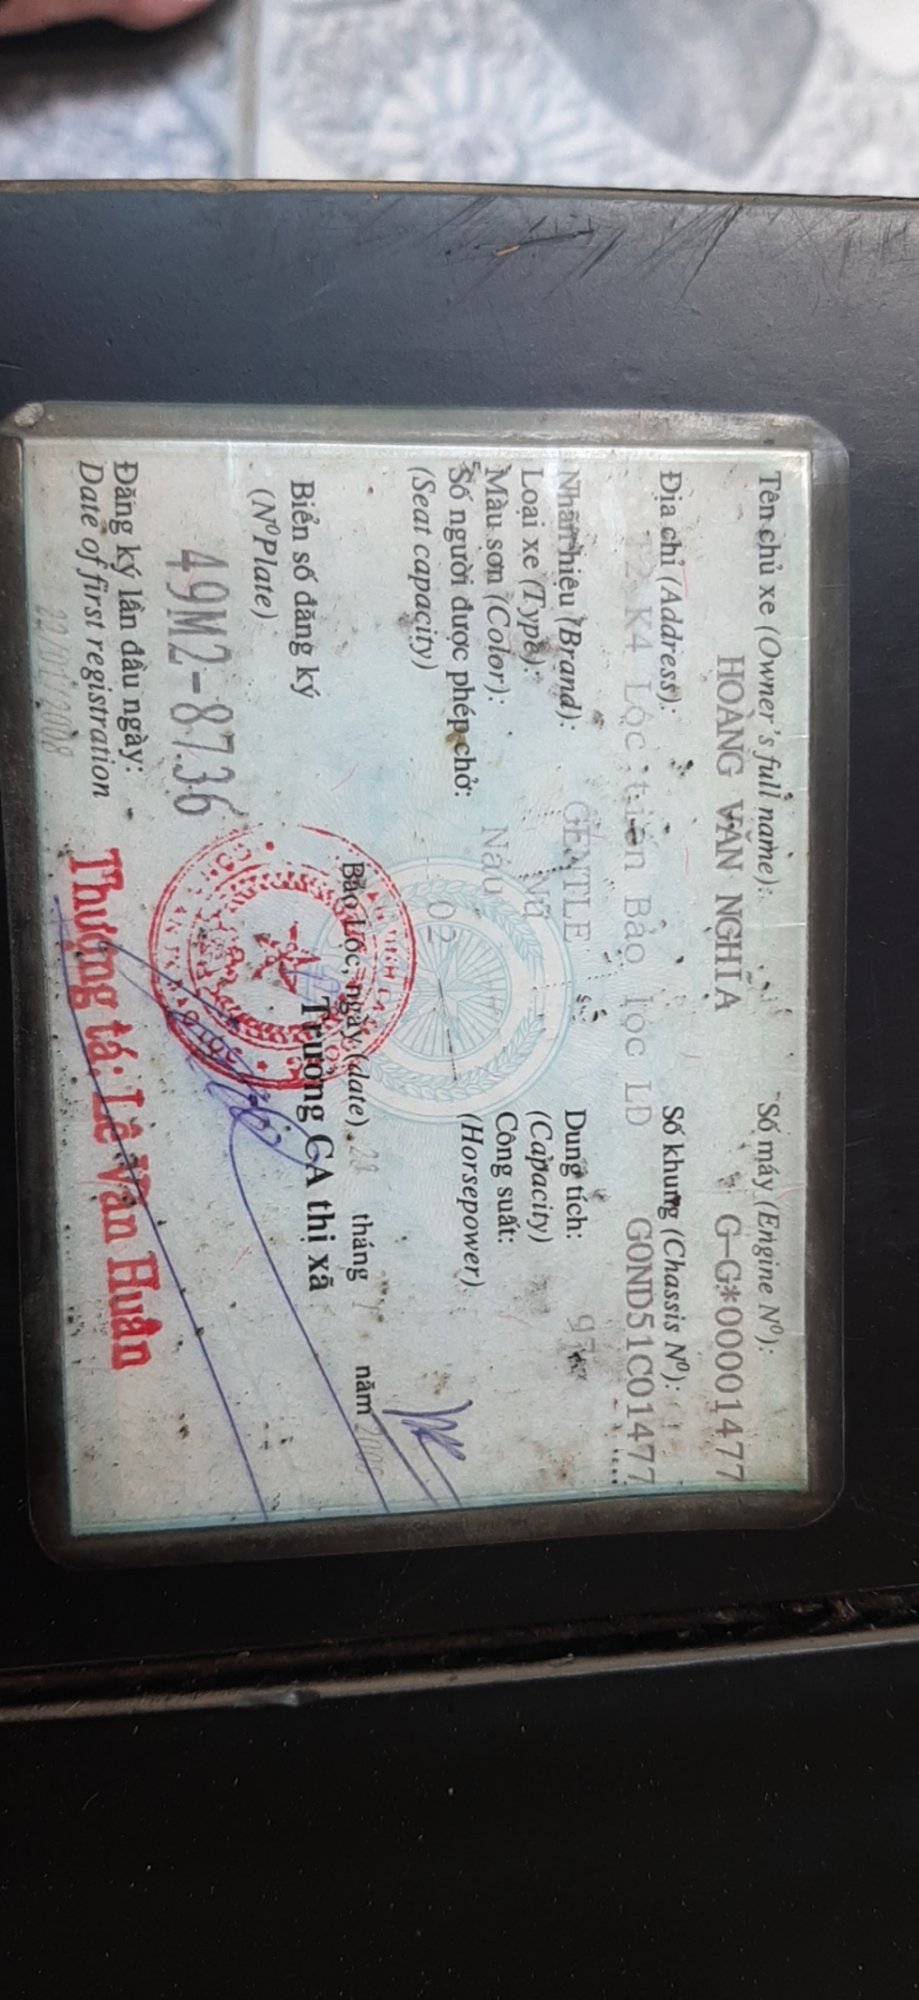 Tên chủ xe (Owner's full name):
HOÀNG VĂN NGHĨA
Số máy (Engine Nº):
G-G*00001477
Địa chỉ (Address):
T2 K4 Lộc tiến Bảo lộc LĐ
Số khung (Chassis Nº):
GOND51C01477
Nhãn hiệu (Brand): GENTLE
Loại xe (Type):
Màu sơn (Color): Nâu
Số người được phép chở: 02
(Seat capacity)
Dung tích: 97
(Capacity)
Công suất:
(Horsepower)
Biển số đăng ký
(Nº Plate)
49M2-8736
Bảo Lộc, ngày (date) tháng năm
Trưởng CA thị xã
Đăng ký lần đầu ngày:
Date of first registration
Thượng tá: Lê Văn Huân